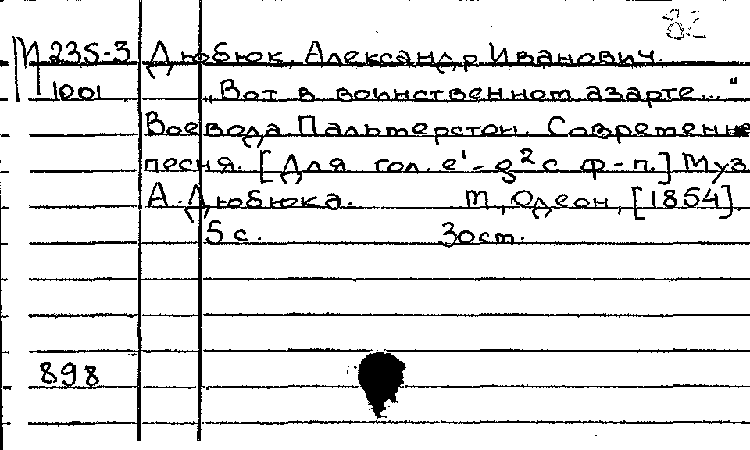 82
М 235-3 Дюбюк, Александр Иванович.
1001 „Вот в воинственном азарте..."
Воевода Пальмерстон. Современне
песня. [Для гол. e'-g² с ф-п.] Муз
А. Дюбюка. М., Одеон, [1854].
5 с. 30 ст.
898